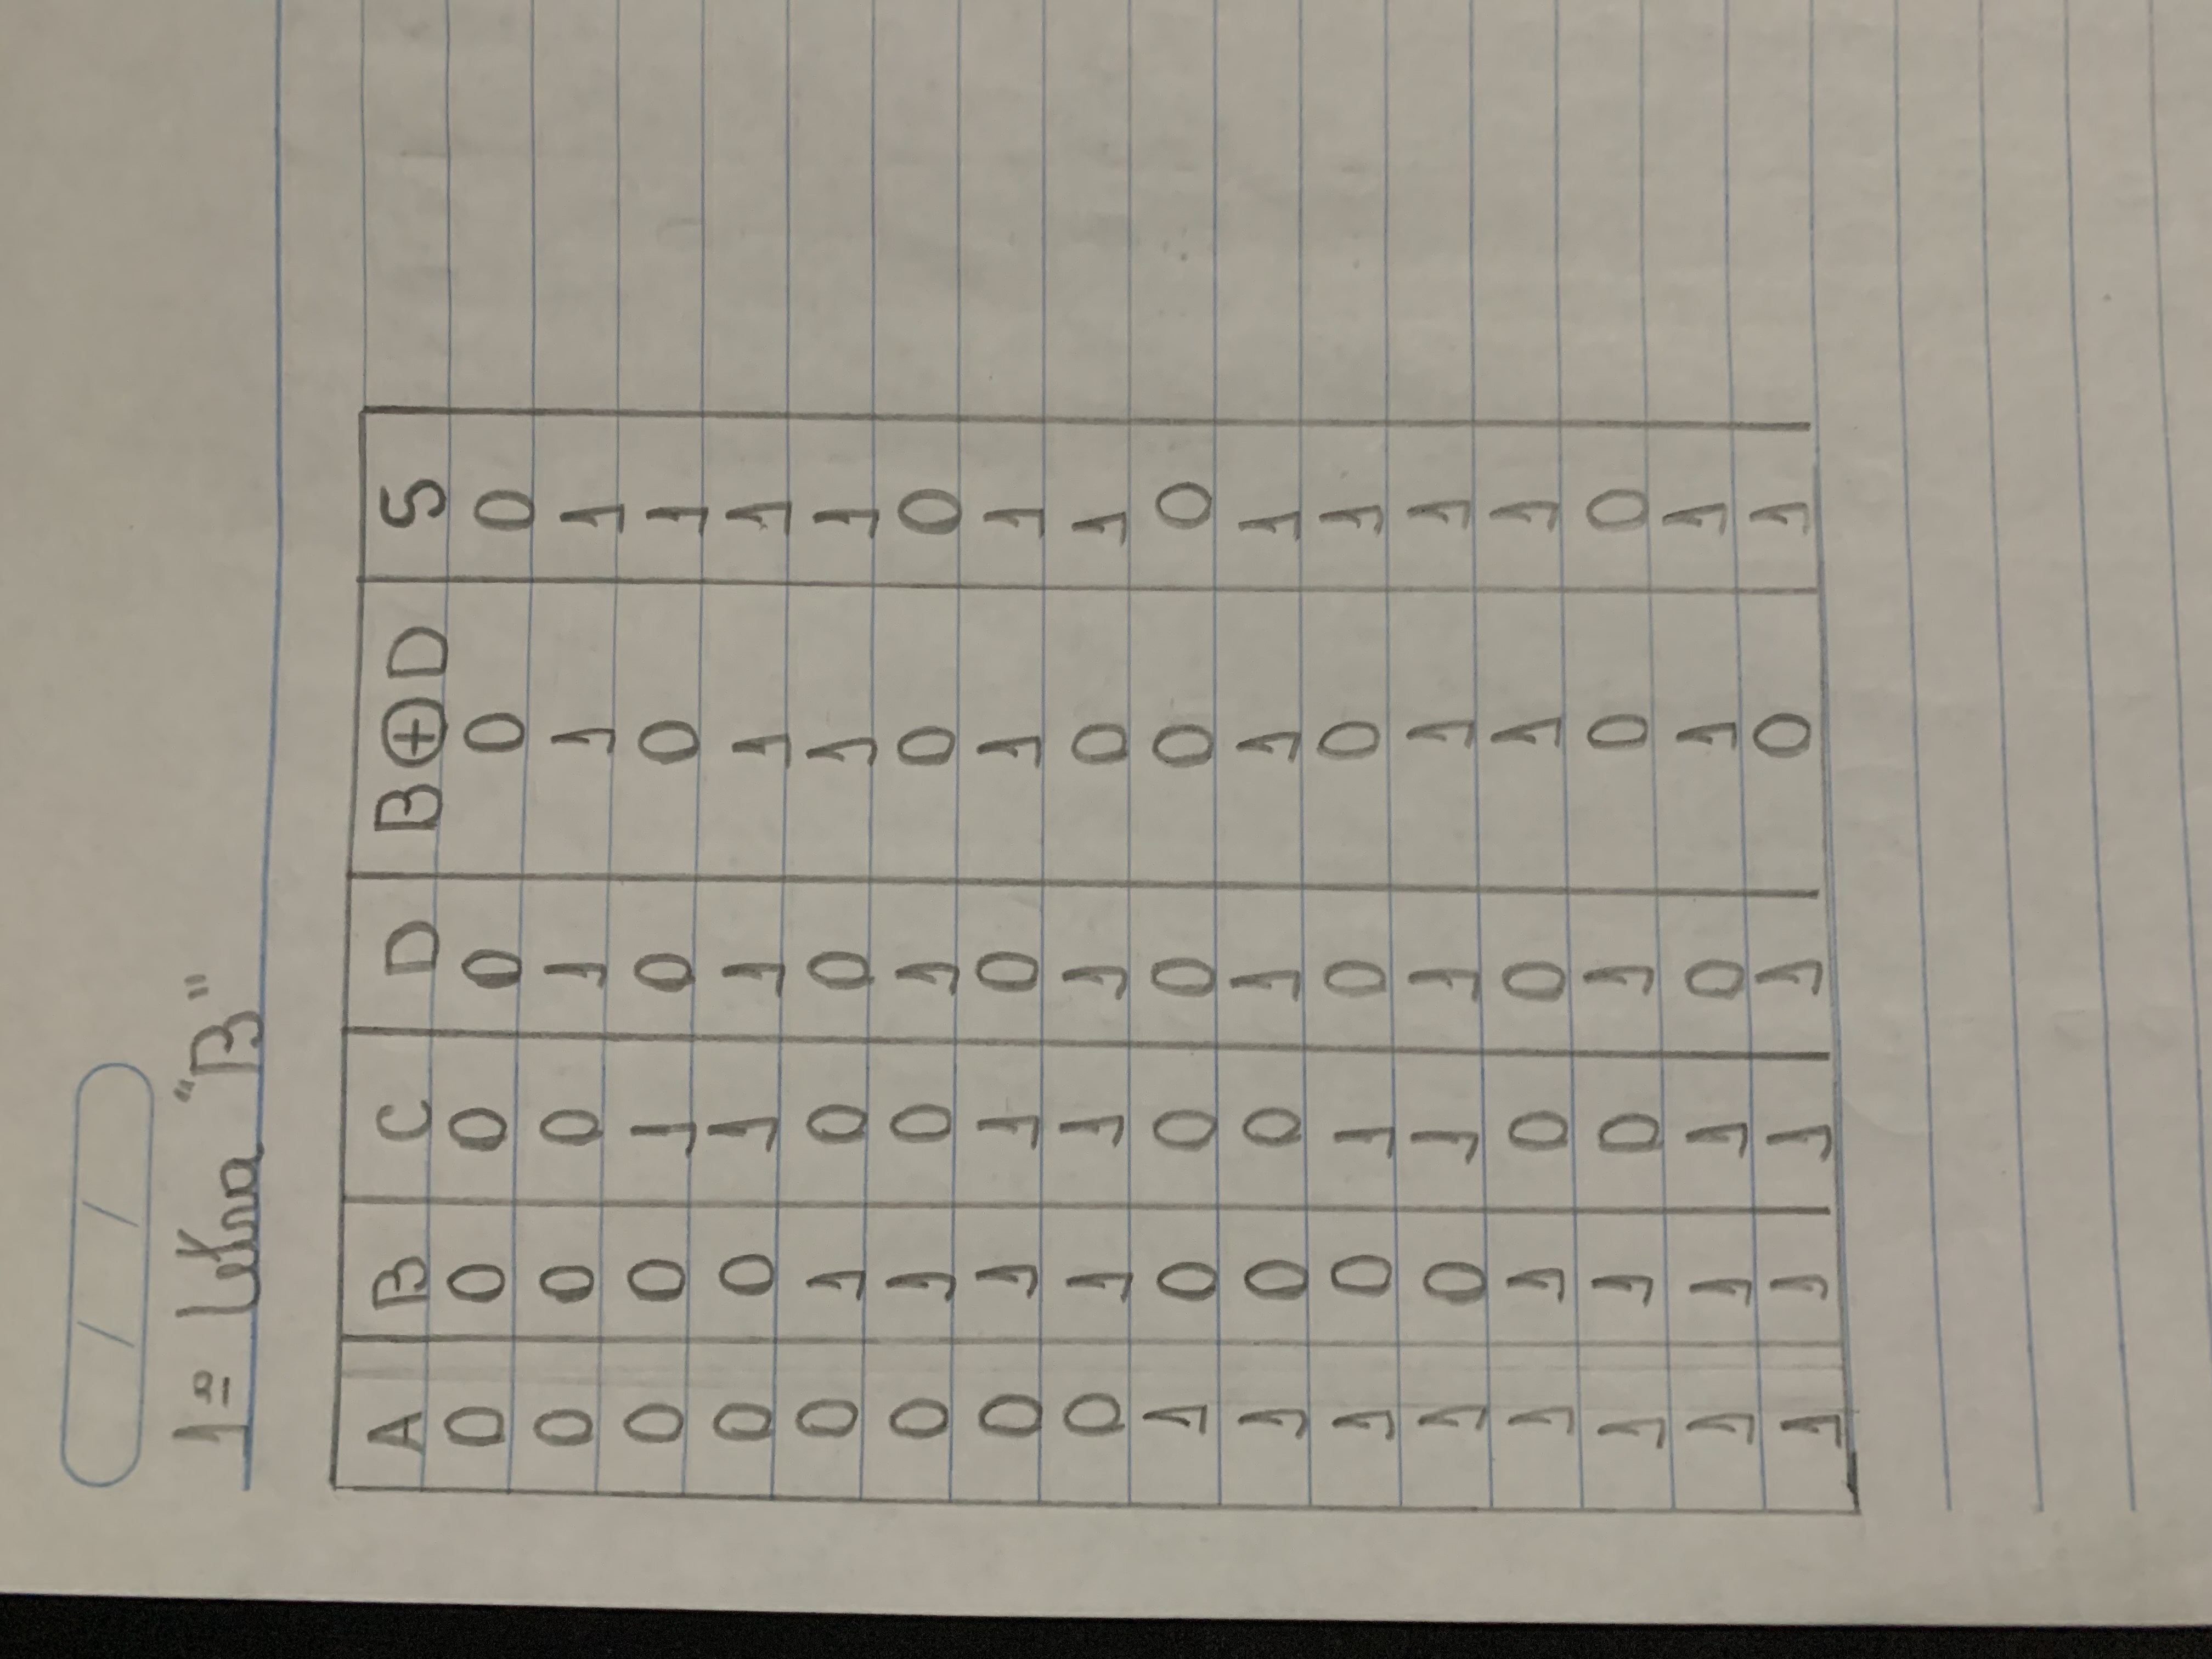 / /
1ª Letra "B"
A B C D B⊕D S
0 0 0 0 0 0
0 0 0 1 1 1
0 0 1 0 0 1
0 0 1 1 1 1
0 1 0 0 1 1
0 1 0 1 0 0
0 1 1 0 1 1
0 1 1 1 0 1
1 0 0 0 0 0
1 0 0 1 1 1
1 0 1 0 0 1
1 0 1 1 1 1
1 1 0 0 1 1
1 1 0 1 0 0
1 1 1 0 1 1
1 1 1 1 0 1